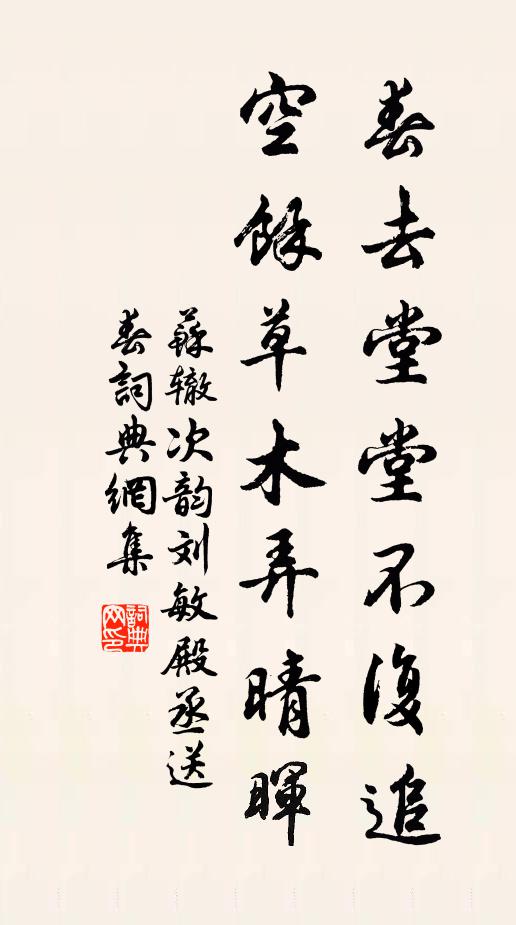 春去堂堂不復追
空餘草木弄晴暉
蘇辙次韵刘敏殿丞送
春詞典網集
詞典
网印